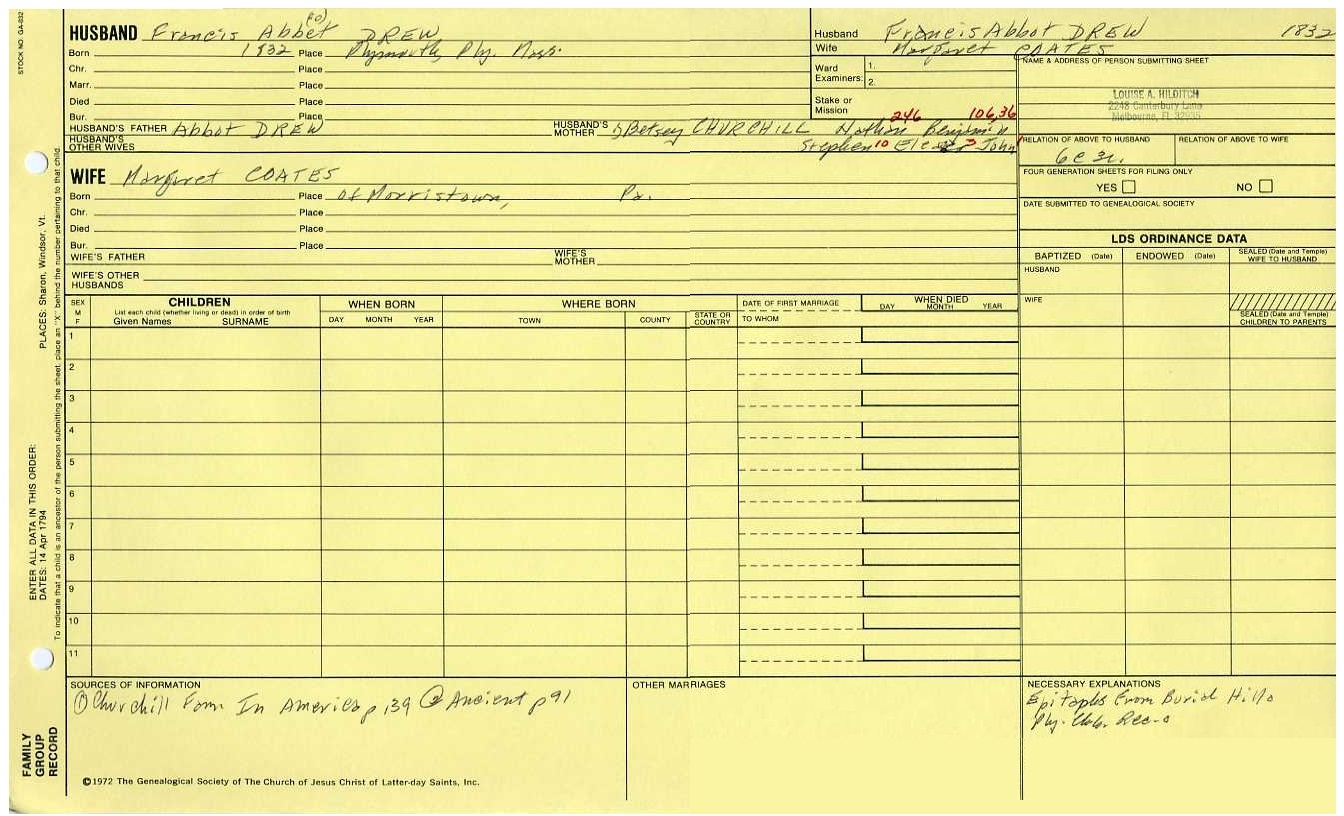 STOCK NO. GA-832
(o)
HUSBAND Francis Abbet DREW
Born 1832 Place Plymouth, Ply. Mass.
Chr. Place
Marr. Place
Died Place
Bur. Place
HUSBAND'S FATHER Abbot DREW HUSBAND'S MOTHER Betsey CHURCHILL Nathan Benjamin
246 106,36
HUSBAND'S OTHER WIVES Stephen 10 3 John
Husband Francis Abbot DREW 1832
Wife Margaret COATES
Ward Examiners: 1. 2.
Stake or Mission
NAME & ADDRESS OF PERSON SUBMITTING SHEET
LOUISE A. HILDITCH
2248 Canterbury Lane
Melbourne, FL 32935
RELATION OF ABOVE TO HUSBAND RELATION OF ABOVE TO WIFE
6c 3r.
FOUR GENERATION SHEETS FOR FILING ONLY
YES NO
DATE SUBMITTED TO GENEALOGICAL SOCIETY
WIFE Margaret COATES
Born Place of Morristown, Pa.
Chr. Place
Died Place
Bur. Place
WIFE'S FATHER WIFE'S MOTHER
WIFE'S OTHER HUSBANDS
LDS ORDINANCE DATA
BAPTIZED (Date) ENDOWED (Date) SEALED (Date and Temple) WIFE TO HUSBAND
HUSBAND
WIFE
SEALED (Date and Temple) CHILDREN TO PARENTS
SEX M F
CHILDREN
List each child (whether living or dead) in order of birth
Given Names SURNAME
WHEN BORN
DAY MONTH YEAR
WHERE BORN
TOWN COUNTY STATE OR COUNTRY
DATE OF FIRST MARRIAGE
TO WHOM
WHEN DIED
DAY MONTH YEAR
1
2
3
4
5
6
7
8
9
10
11
SOURCES OF INFORMATION
① Churchill Fam In America p 139 ② Ancient p 91
OTHER MARRIAGES
NECESSARY EXPLANATIONS
Epitaphs From Burial Hill
Ply. Rec.
©1972 The Genealogical Society of The Church of Jesus Christ of Latter-day Saints, Inc.
FAMILY GROUP RECORD
ENTER ALL DATA IN THIS ORDER:
DATES: 14 Apr 1794
PLACES: Sharon, Windsor, Vt.
To indicate that a child is an ancestor of the person submitting the sheet, place an "X" behind the number pertaining to that child.